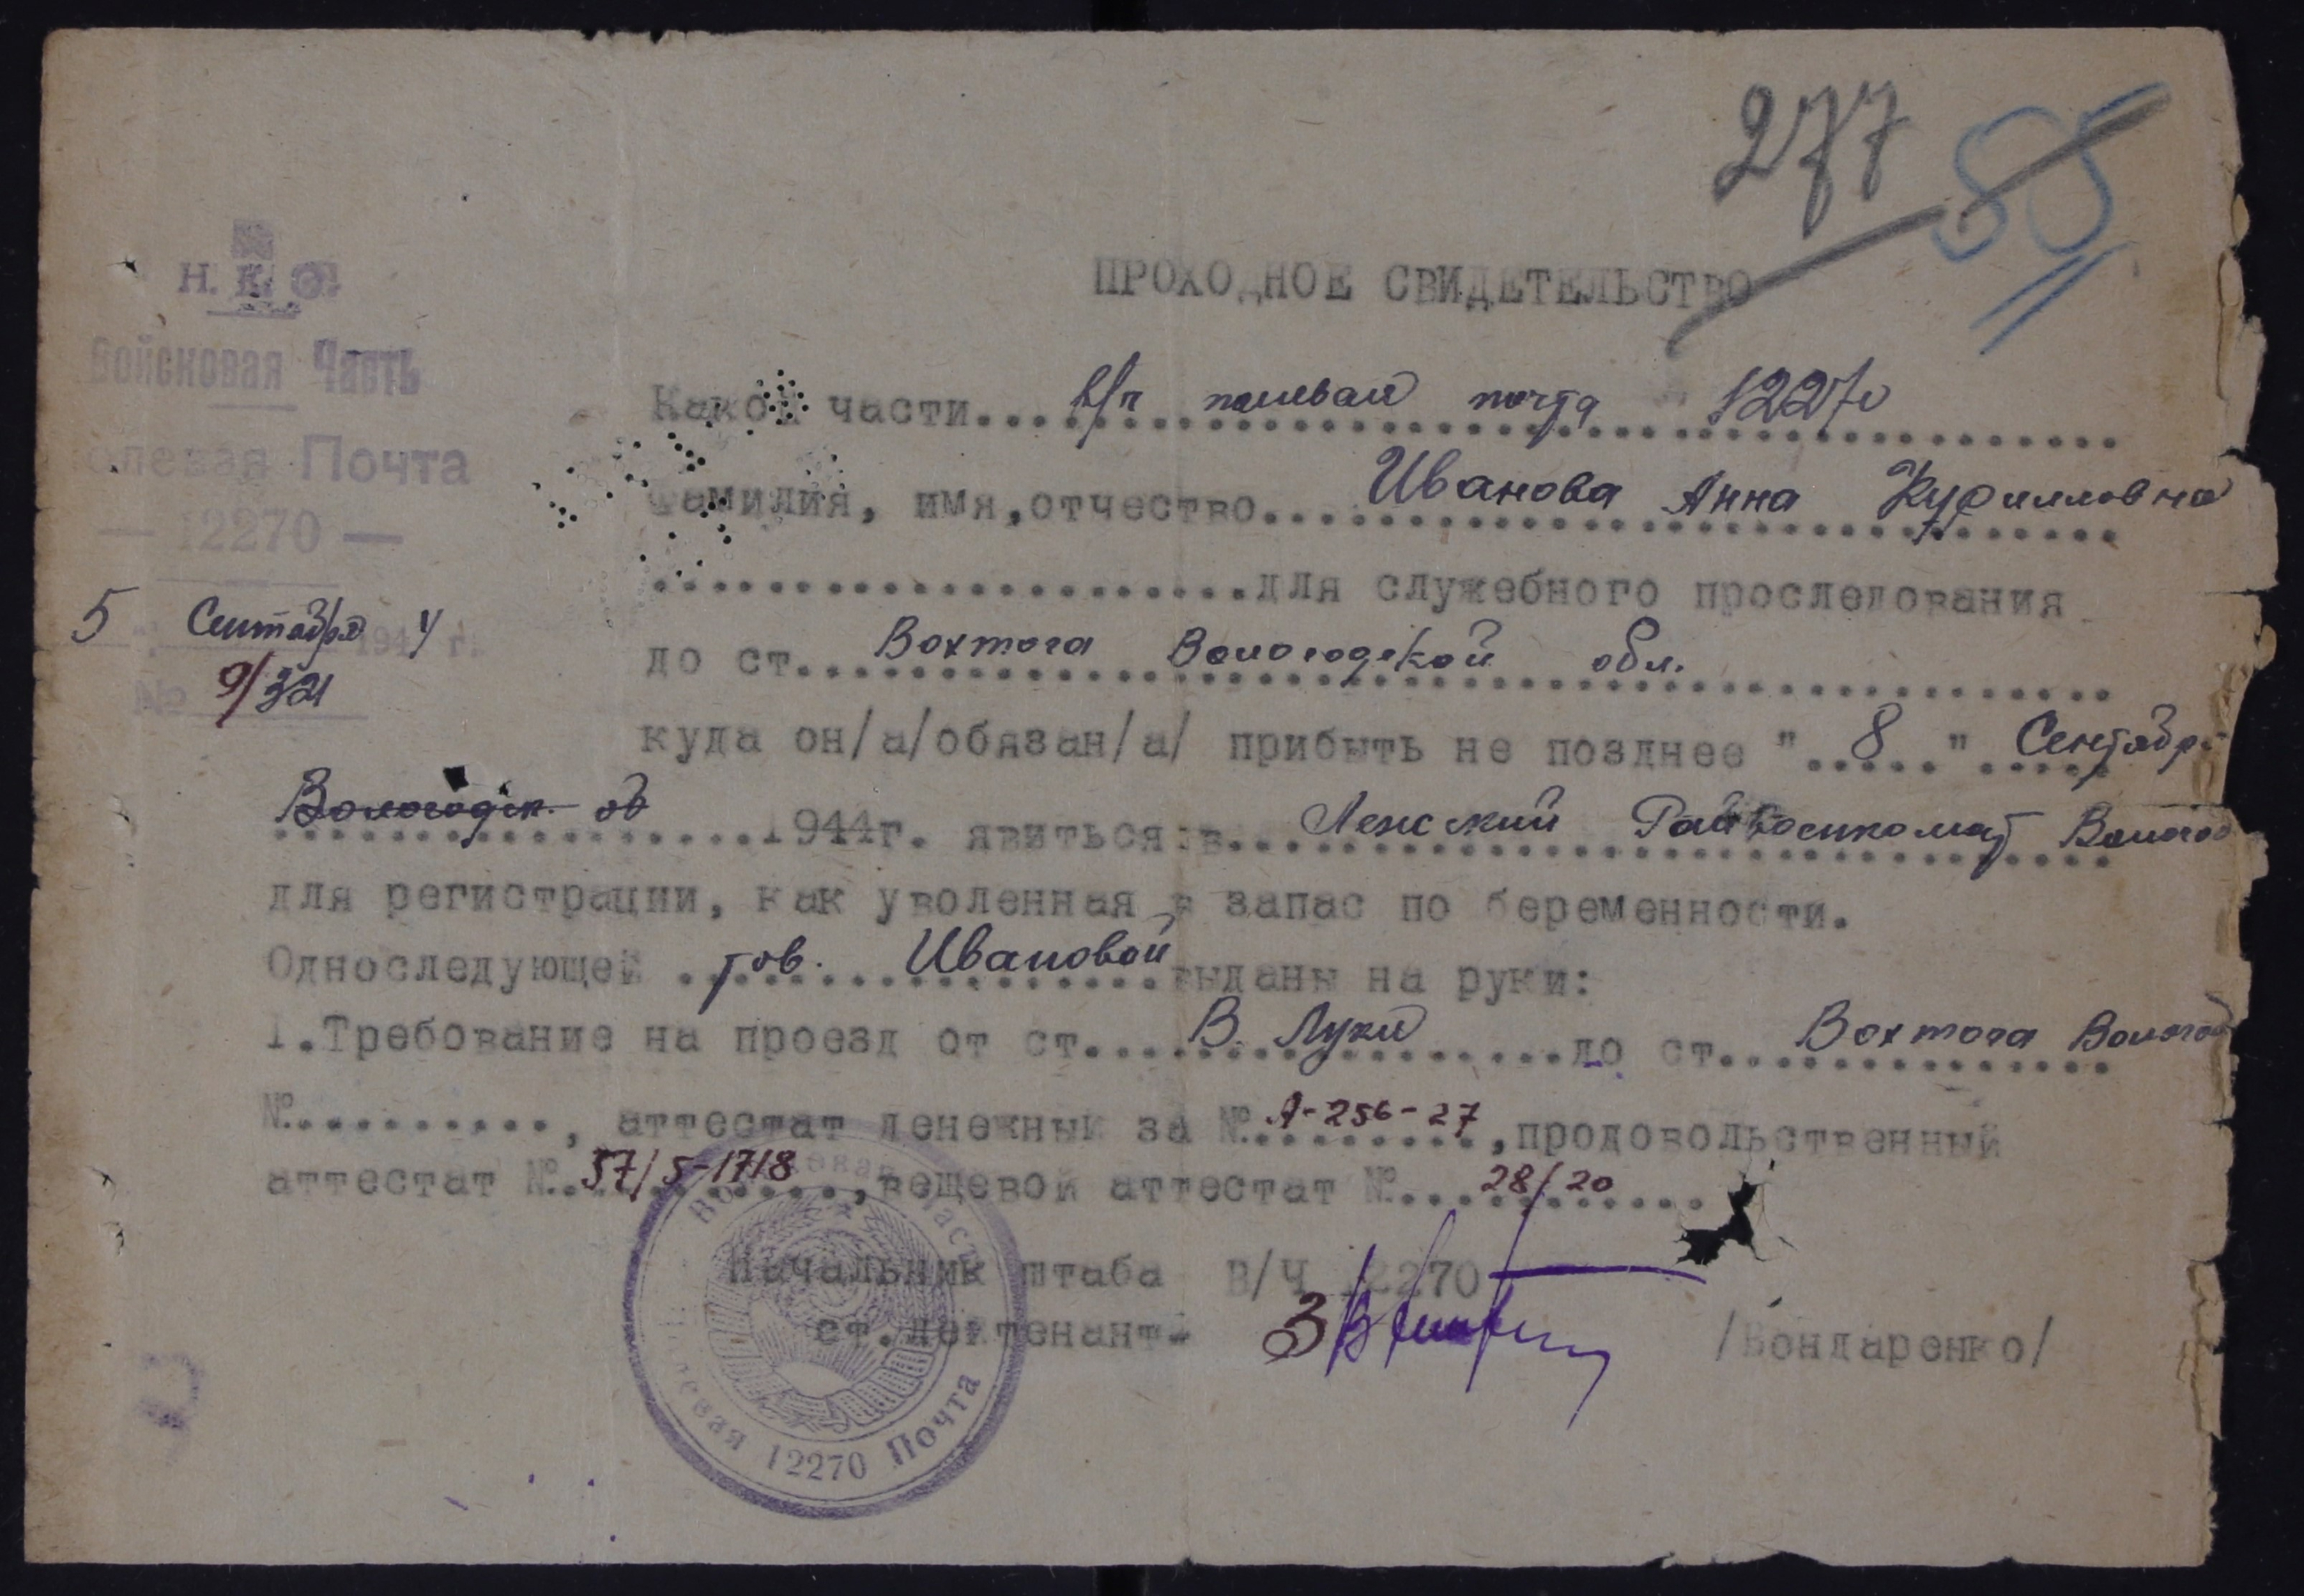 277 85
Н. К. О.
Войсковая Часть
олевая Почта
— 12270 —
5 Сентября 1944 г.
№ 9/321
ПРОХОДНОЕ СВИДЕТЕЛЬСТВО
Какой части... полевая почта 12270
Фамилия, имя,отчество... Иванова Анна Курилловна
...для служебного проследования
до ст... Вохтога Вологодской обл.
куда он/а/обязан/а/ прибыть не позднее "8" Сентября
Вологодск. об 1944г. явиться в... Лежский Райвоенкомат Волог
для регистрации, как уволенная в запас по беременности.
Односледующей тов. Ивановой выданы на руки:
1.Требование на проезд от ст... В. Луки до ст... Вохтога Волог
№.........., аттестат денежный за №. А-256-27, продовольственный
аттестат №. 57/5-1718, вещевой аттестат №. 28/20
Начальник штаба В/Ч 12270
ст.лейтенант- /Бондаренко/
евая 12270 Почта